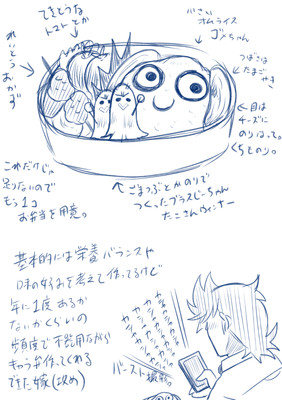 てきとうな
トマトとか
れいとうおかず
小さい
オムライス
ゴメちゃん
つばさは
たまごやき
←目は
チーズに
のりはって。
くちものり。
これだけじゃ
足りないので
もう1コ
お弁当を用意。
ごまつぶとかのりで
つくったブラスじーちゃん
たこさんウィンナー
基本的には栄養バランスや
味の好みを考えて作ってるけど
年に1度あるか
ないかくらいの
頻度で不器用ながら
キャラ弁作ってくれる
できた嫁(攻め)
カシャカシャカシャ
カシャカシャカシャ
バースト撮影。